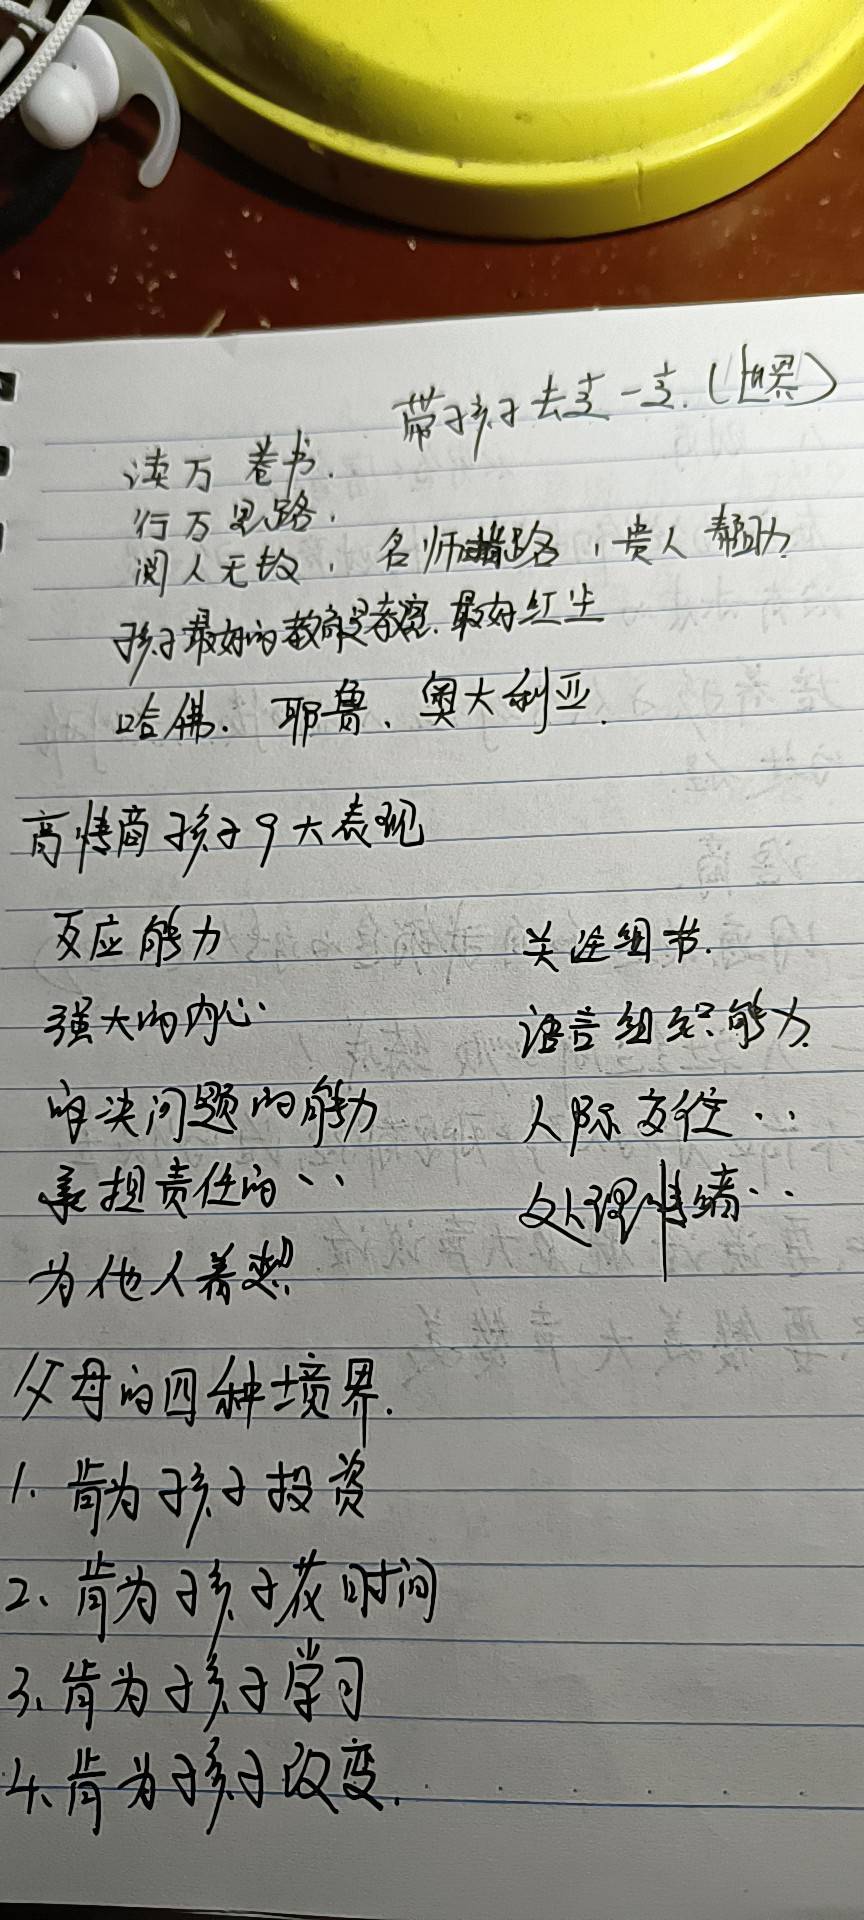 带孩子去走一走.(世界)
读万卷书.
行万里路.
阅人无数, 名师指路, 贵人帮助.
孩子最好的教育是 最好
哈佛. 耶鲁、奥大利亚.
高情商孩子9大表现
反应能力 关注细节.
强大的内心 语言组织能力.
解决问题的能力 人际交往..
承担责任的.. 处理情绪..
为他人着想
父母的四种境界.
1. 肯为孩子投资
2、肯为孩子花时间
3、肯为孩子学习
4、肯为孩子改变.